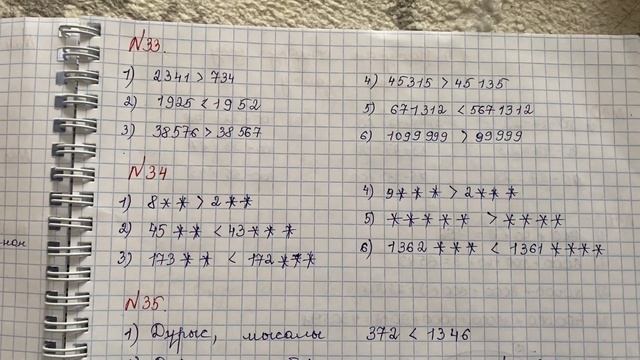 N33.
1) 2341 > 734
2) 1925 < 1952
3) 38576 > 38567
4) 45315 > 45135
5) 671312 < 5671312
6) 1099999 > 99999
N34
1) 8** > 2**
2) 45** < 43***
3) 173** < 172***
4) 9*** > 2***
5) ***** > ****
6) 1362*** < 1361****
N35.
1) Дұрыс, мысалы 372 < 1346